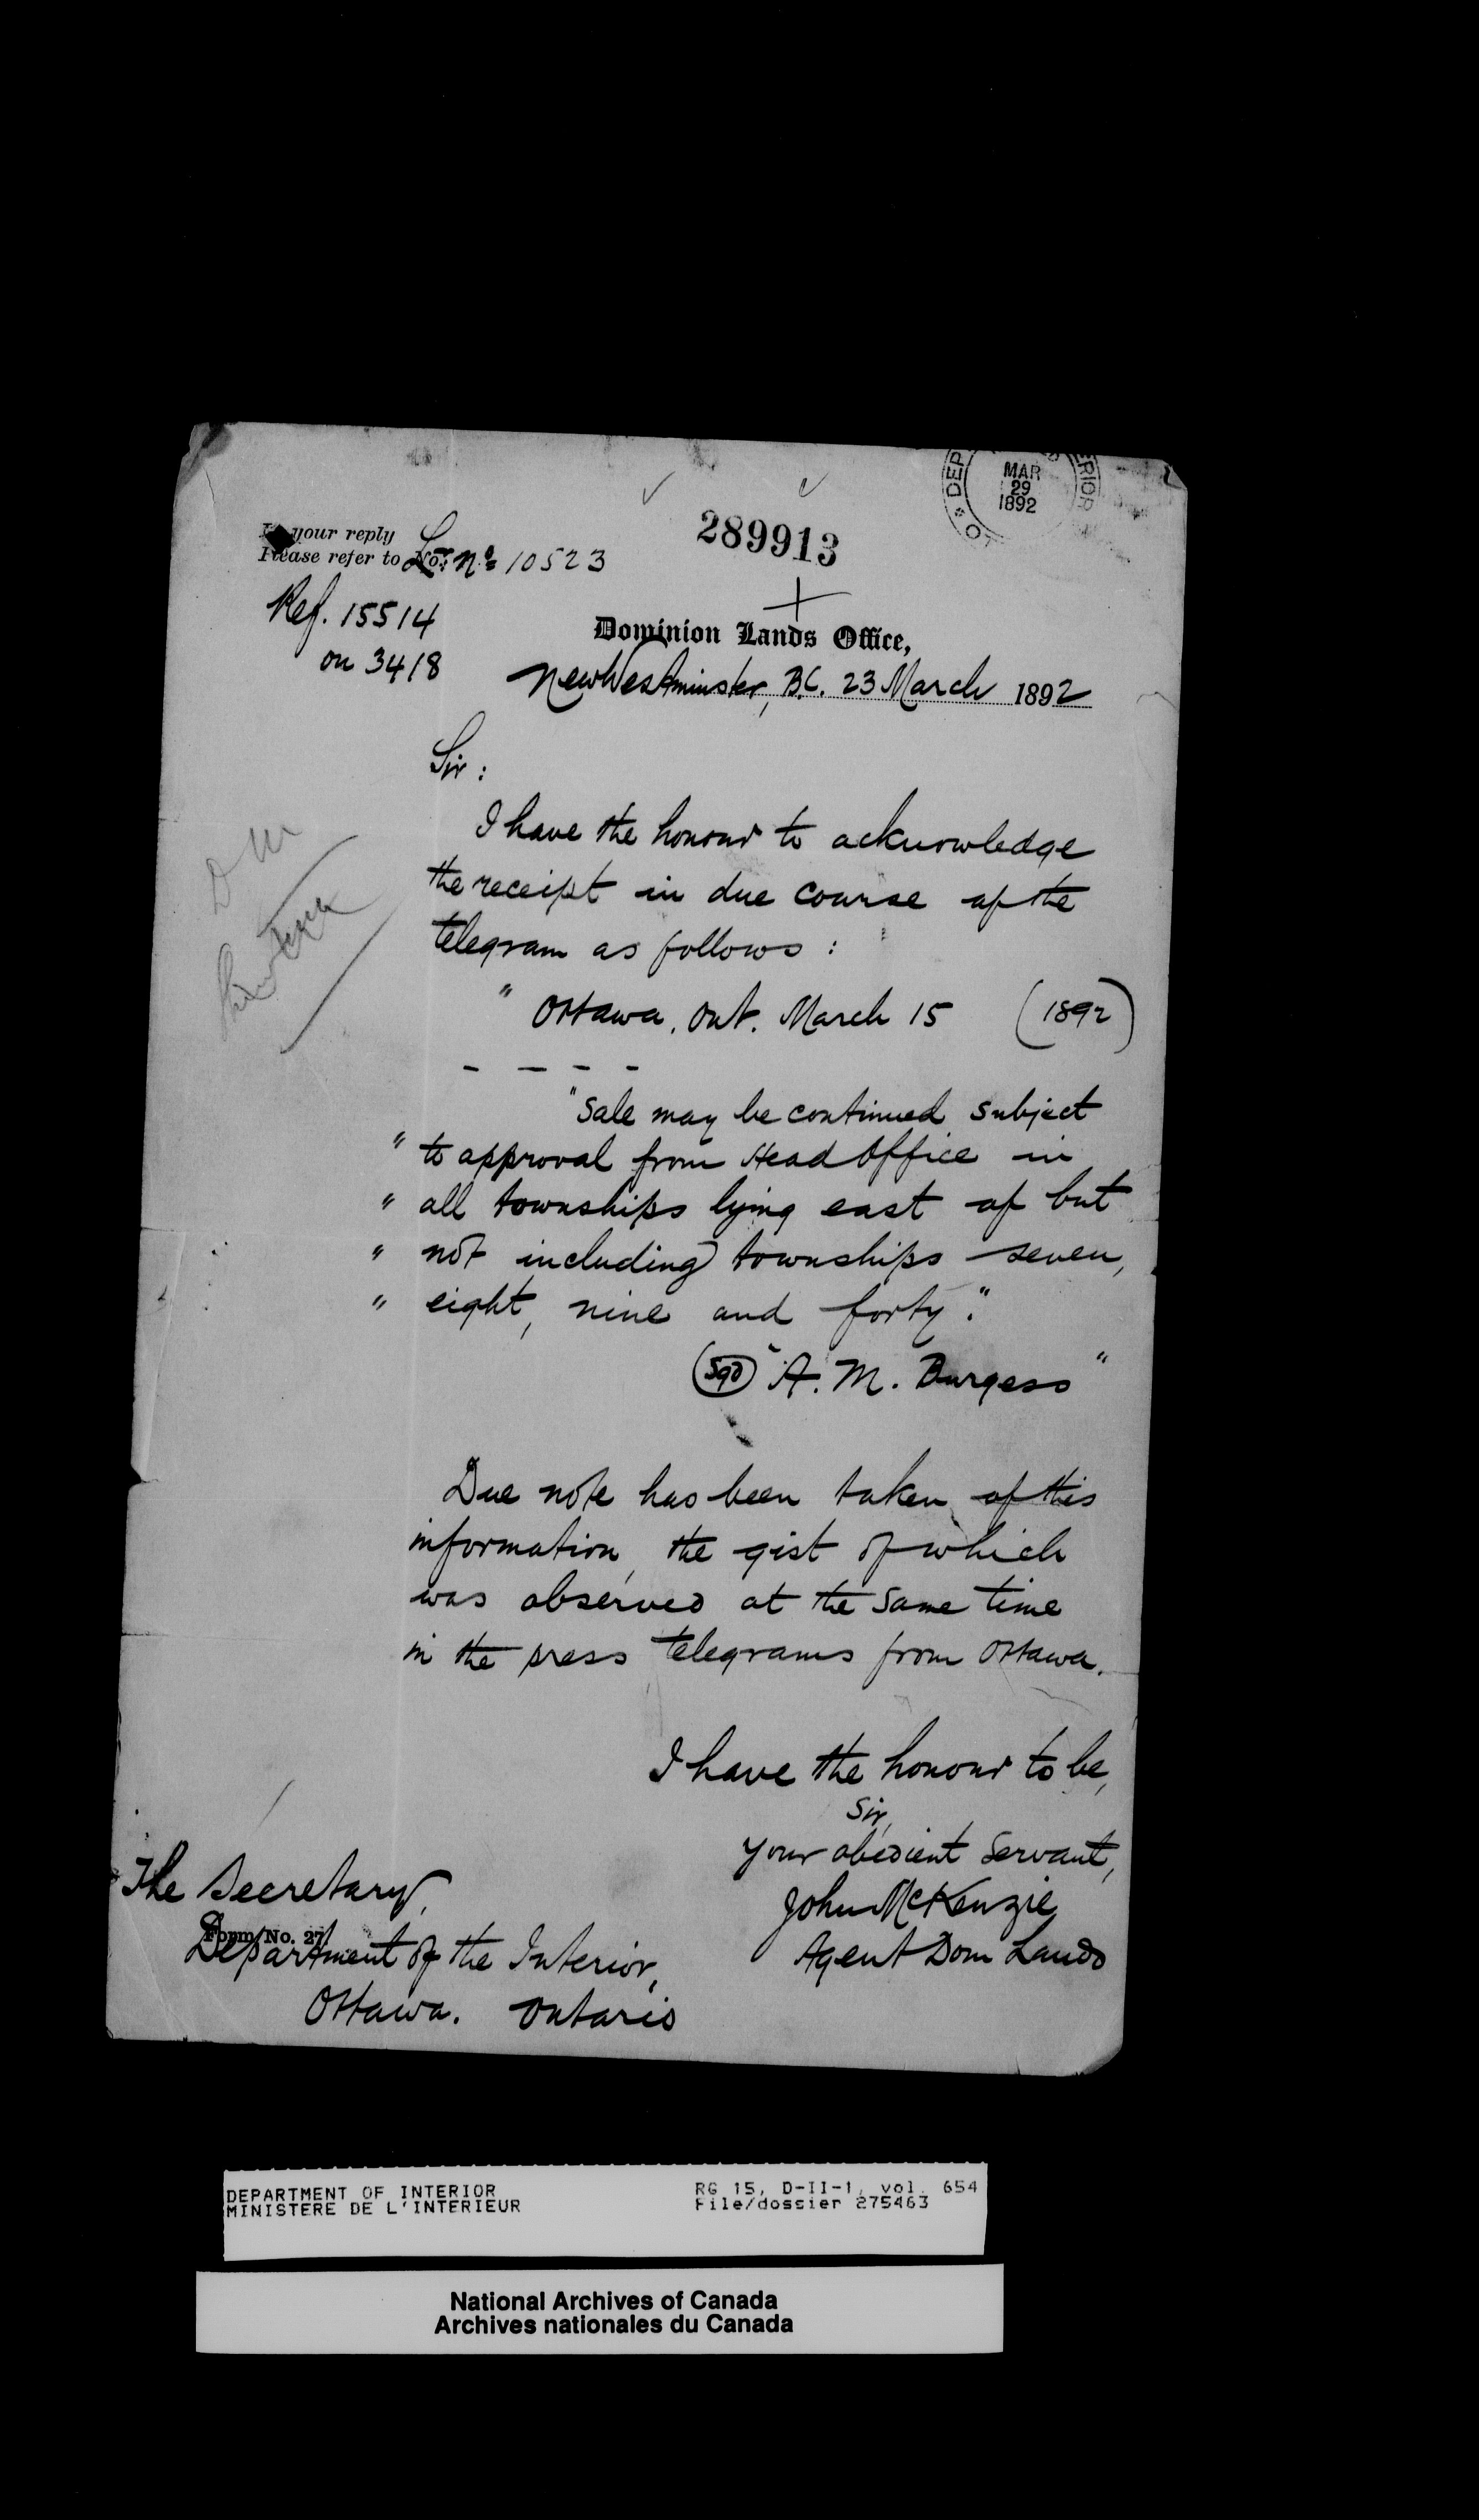 MAR
29
1892
289913
your reply
Please refer to No. L. Nº 10523
Ref. 15514
on 3418
Dominion Lands Office,
New Westminster, B.C. 23 March 1892
Sir :
I have the honour to acknowledge
the receipt in due course of the
telegram as follows :
" Ottawa, Ont. March 15 (1892)
- - - -
"Sale may be continued subject
" to approval from Head Office in
" all townships lying east of but
" not including townships seven,
" eight, nine and forty."
(Sgd) "A. M. Burgess"
Due note has been taken of this
information, the gist of which
was observed at the same time
in the press telegrams from Ottawa.
I have the honour to be,
Sir,
Your obedient servant,
John McKenzie
Agent Dom Lands
The Secretary,
Form No. 27
Department of the Interior,
Ottawa. Ontario
DEPARTMENT OF INTERIOR RG 15, D-II-1, vol. 654
MINISTERE DE L'INTERIEUR File/dossier 275463
National Archives of Canada
Archives nationales du Canada